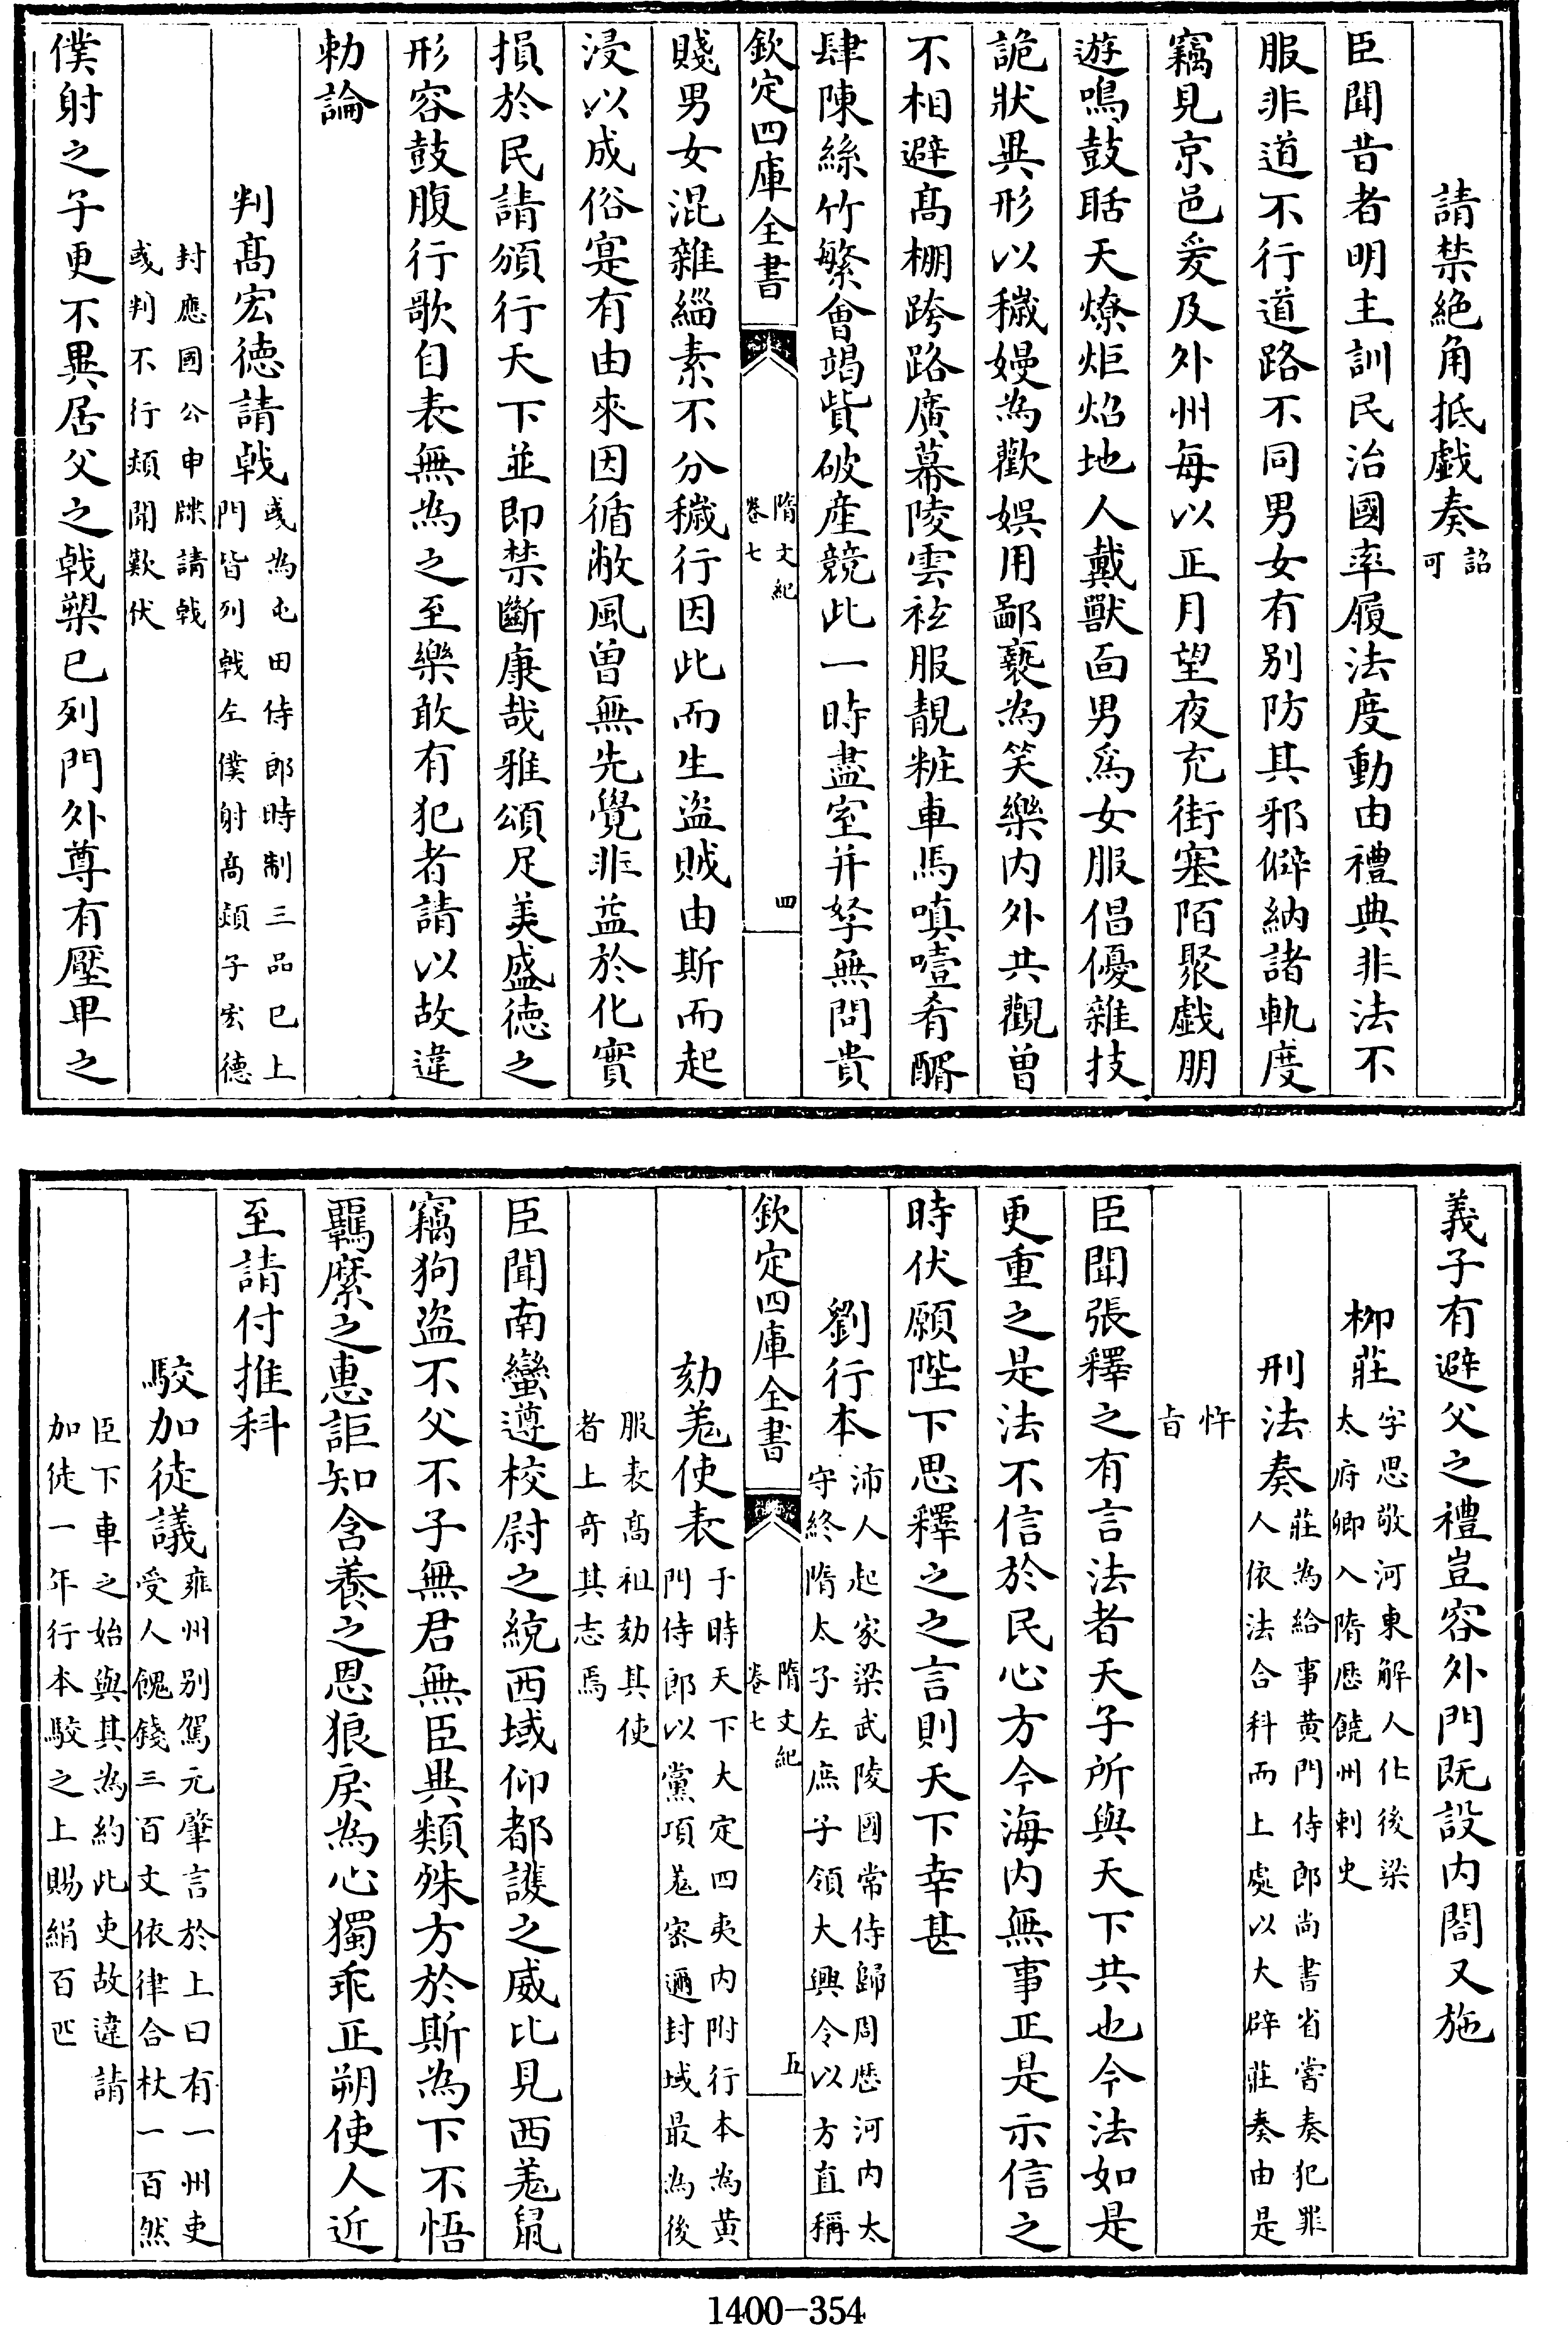 請禁絶角抵戲奏詔可
臣聞昔者明主訓民治國率履法度動由禮典非法不
服非道不行道路不同男女有别防其邪僻納諸軌度
竊見京邑爰及外州每以正月望夜充街塞陌聚戲朋
遊鳴鼓聒天燎炬焰地人戴獸面男爲女服倡優雜技
詭狀異形以穢嫚為歡娯用鄙䙝為笑樂内外共觀曽
不相避髙棚跨路廣幕陵雲袨服靚粧車馬嗔噎肴醑
肆陳絲竹繁會竭貲破産競此一時盡室并孥無問貴
欽定四庫全書
隋文紀
卷七
四
賤男女混雜緇素不分穢行因此而生盗賊由斯而起
浸以成俗寔有由來因循敝風曽無先覺非益於化實
損於民請頒行天下並即禁斷康哉雅頌足美盛徳之
形容鼓腹行歌自表無為之至樂敢有犯者請以故違
勅論
判髙宏徳請戟
彧為屯田侍郎時制三品已上
門皆列戟左僕射髙熲子宏德
封應國公申牒請戟
彧判不行熲聞歎伏
僕射之子更不異居父之戟槊已列門外尊有壓卑之
義子有避父之禮豈容外門既設内閤又施
柳莊
字思敬河東解人仕後梁
太府卿入隋歴饒州刺史
刑法奏
莊為給事黄門侍郎尚書省嘗奏犯罪
人依法合科而上處以大辟莊奏由是
忤
㫖
臣聞張釋之有言法者天子所與天下共也今法如是
更重之是法不信於民心方今海内無事正是示信之
時伏願陛下思釋之之言則天下幸甚
劉行本
沛人起家梁武陵國常侍歸周歴河内太
守終隋太子左庶子領大興令以方直稱
欽定四庫全書
隋文紀
卷七
五
劾羌使表
于時天下大定四夷内附行本為黄
門侍郎以黨項羌宻邇封域最為後
服表髙祖劾其使
者上竒其志焉
臣聞南蠻遵校尉之統西域仰都護之威比見西羌鼠
竊狗盗不父不子無君無臣異類殊方於斯為下不悟
羈縻之惠詎知含養之恩狼戾為心獨乖正朔使人近
至請付推科
駮加徒議
雍州别駕元肇言於上曰有一州吏
受人餽錢三百文依律合杖一百然
臣下車之始與其為約此吏故違請
加徒一年行本駮之上賜絹百匹
1400-354